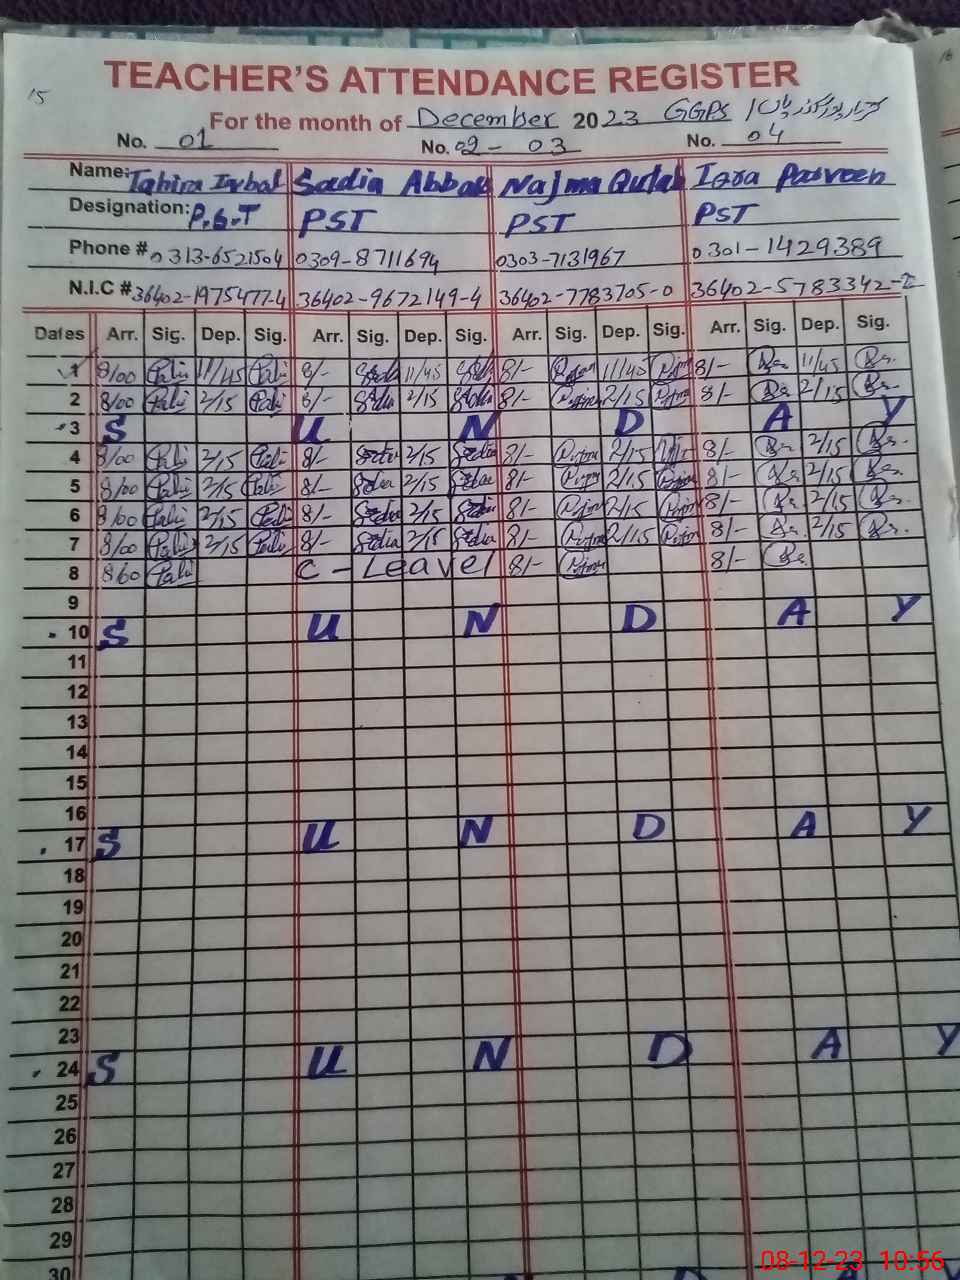 15
TEACHER'S ATTENDANCE REGISTER
For the month of December 2023 GGPS
No. 01 No. 02 - 03 No. 04
Name: Tahira Iqbal Sadia Abbas Najma Qulab Iqra Parveen
Designation: P.S.T PST PST PST
Phone # 0313-6521504 0309-8711694 0303-7131967 0301-1429389
N.I.C # 36402-1975477-4 36402-9672149-4 36402-7783705-0 36402-5783342-
Dates Arr. Sig. Dep. Sig. Arr. Sig. Dep. Sig. Arr. Sig. Dep. Sig. Arr. Sig. Dep. Sig.
1 8/00 11/45 8/- 11/45 8/- 11/45 8/- 11/45
2 8/00 2/15 8/- 2/15 8/- 2/15 8/- 2/15
3 S U N D A Y
4 8/00 2/15 8/- 2/15 8/- 2/15 8/- 2/15
5 8/00 2/15 8/- Sadia 2/15 8/- 2/15 8/- 2/15
6 8/00 2/15 8/- Sadia 2/15 8/- 2/15 8/- 2/15
7 8/00 2/15 8/- Sadia 2/15 Sadia 8/- 2/15 8/- 2/15
8 8/00 C - Leave 8/- 8/-
9
10 S U N D A Y
11
12
13
14
15
16
17 S U N D A Y
18
19
20
21
22
23
24 S U N D A Y
25
26
27
28
29
30
08-12-23 10:56